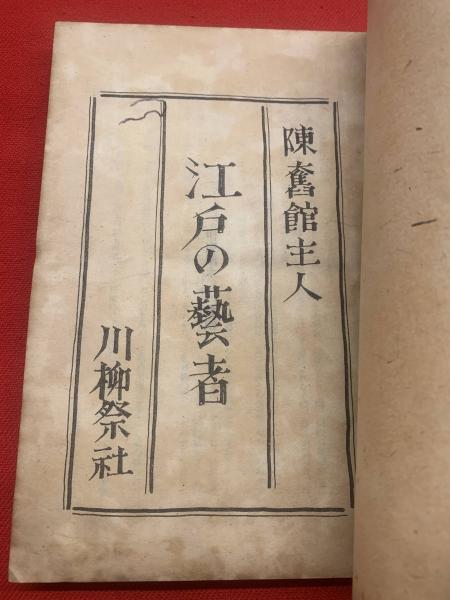 陳奮館主人
江戸の藝者
川柳祭社